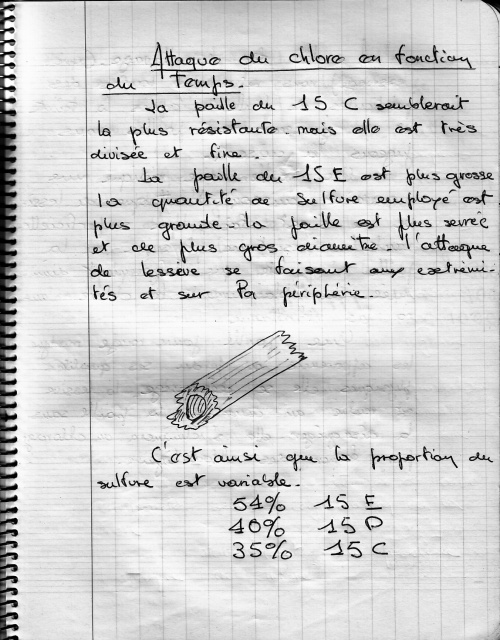 Attaque du chlore en fonction
du Temps.
La paille du 15 C semblerait
la plus résistante. mais elle est très
divisée et fine.
La paille du 15 E est plus grosse
la quantité de Sulfure employé est
plus grande. la paille est plus serrée
et de plus gros diamètre. l'attaque
de lessive se faisant aux extremi-
tés et sur la périphérie.
C'est ainsi que la proportion de
sulfure est variable.
54% 15 E
40% 15 D
35% 15 C